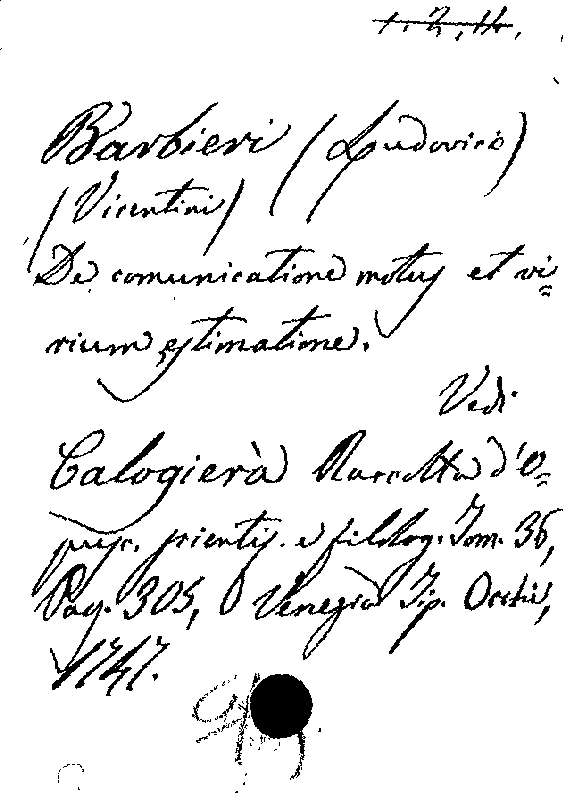 1. 2, 14.
Barbieri (Ludovico)
(Vicentini)
De comunicatione motus et vi=
rium estimatione.
Vedi
Calogierà Raccolta d'O=
pusc. scientif. e filolog. Tom. 36,
Pag. 305, Venezia Tip. Occhi,
1747.